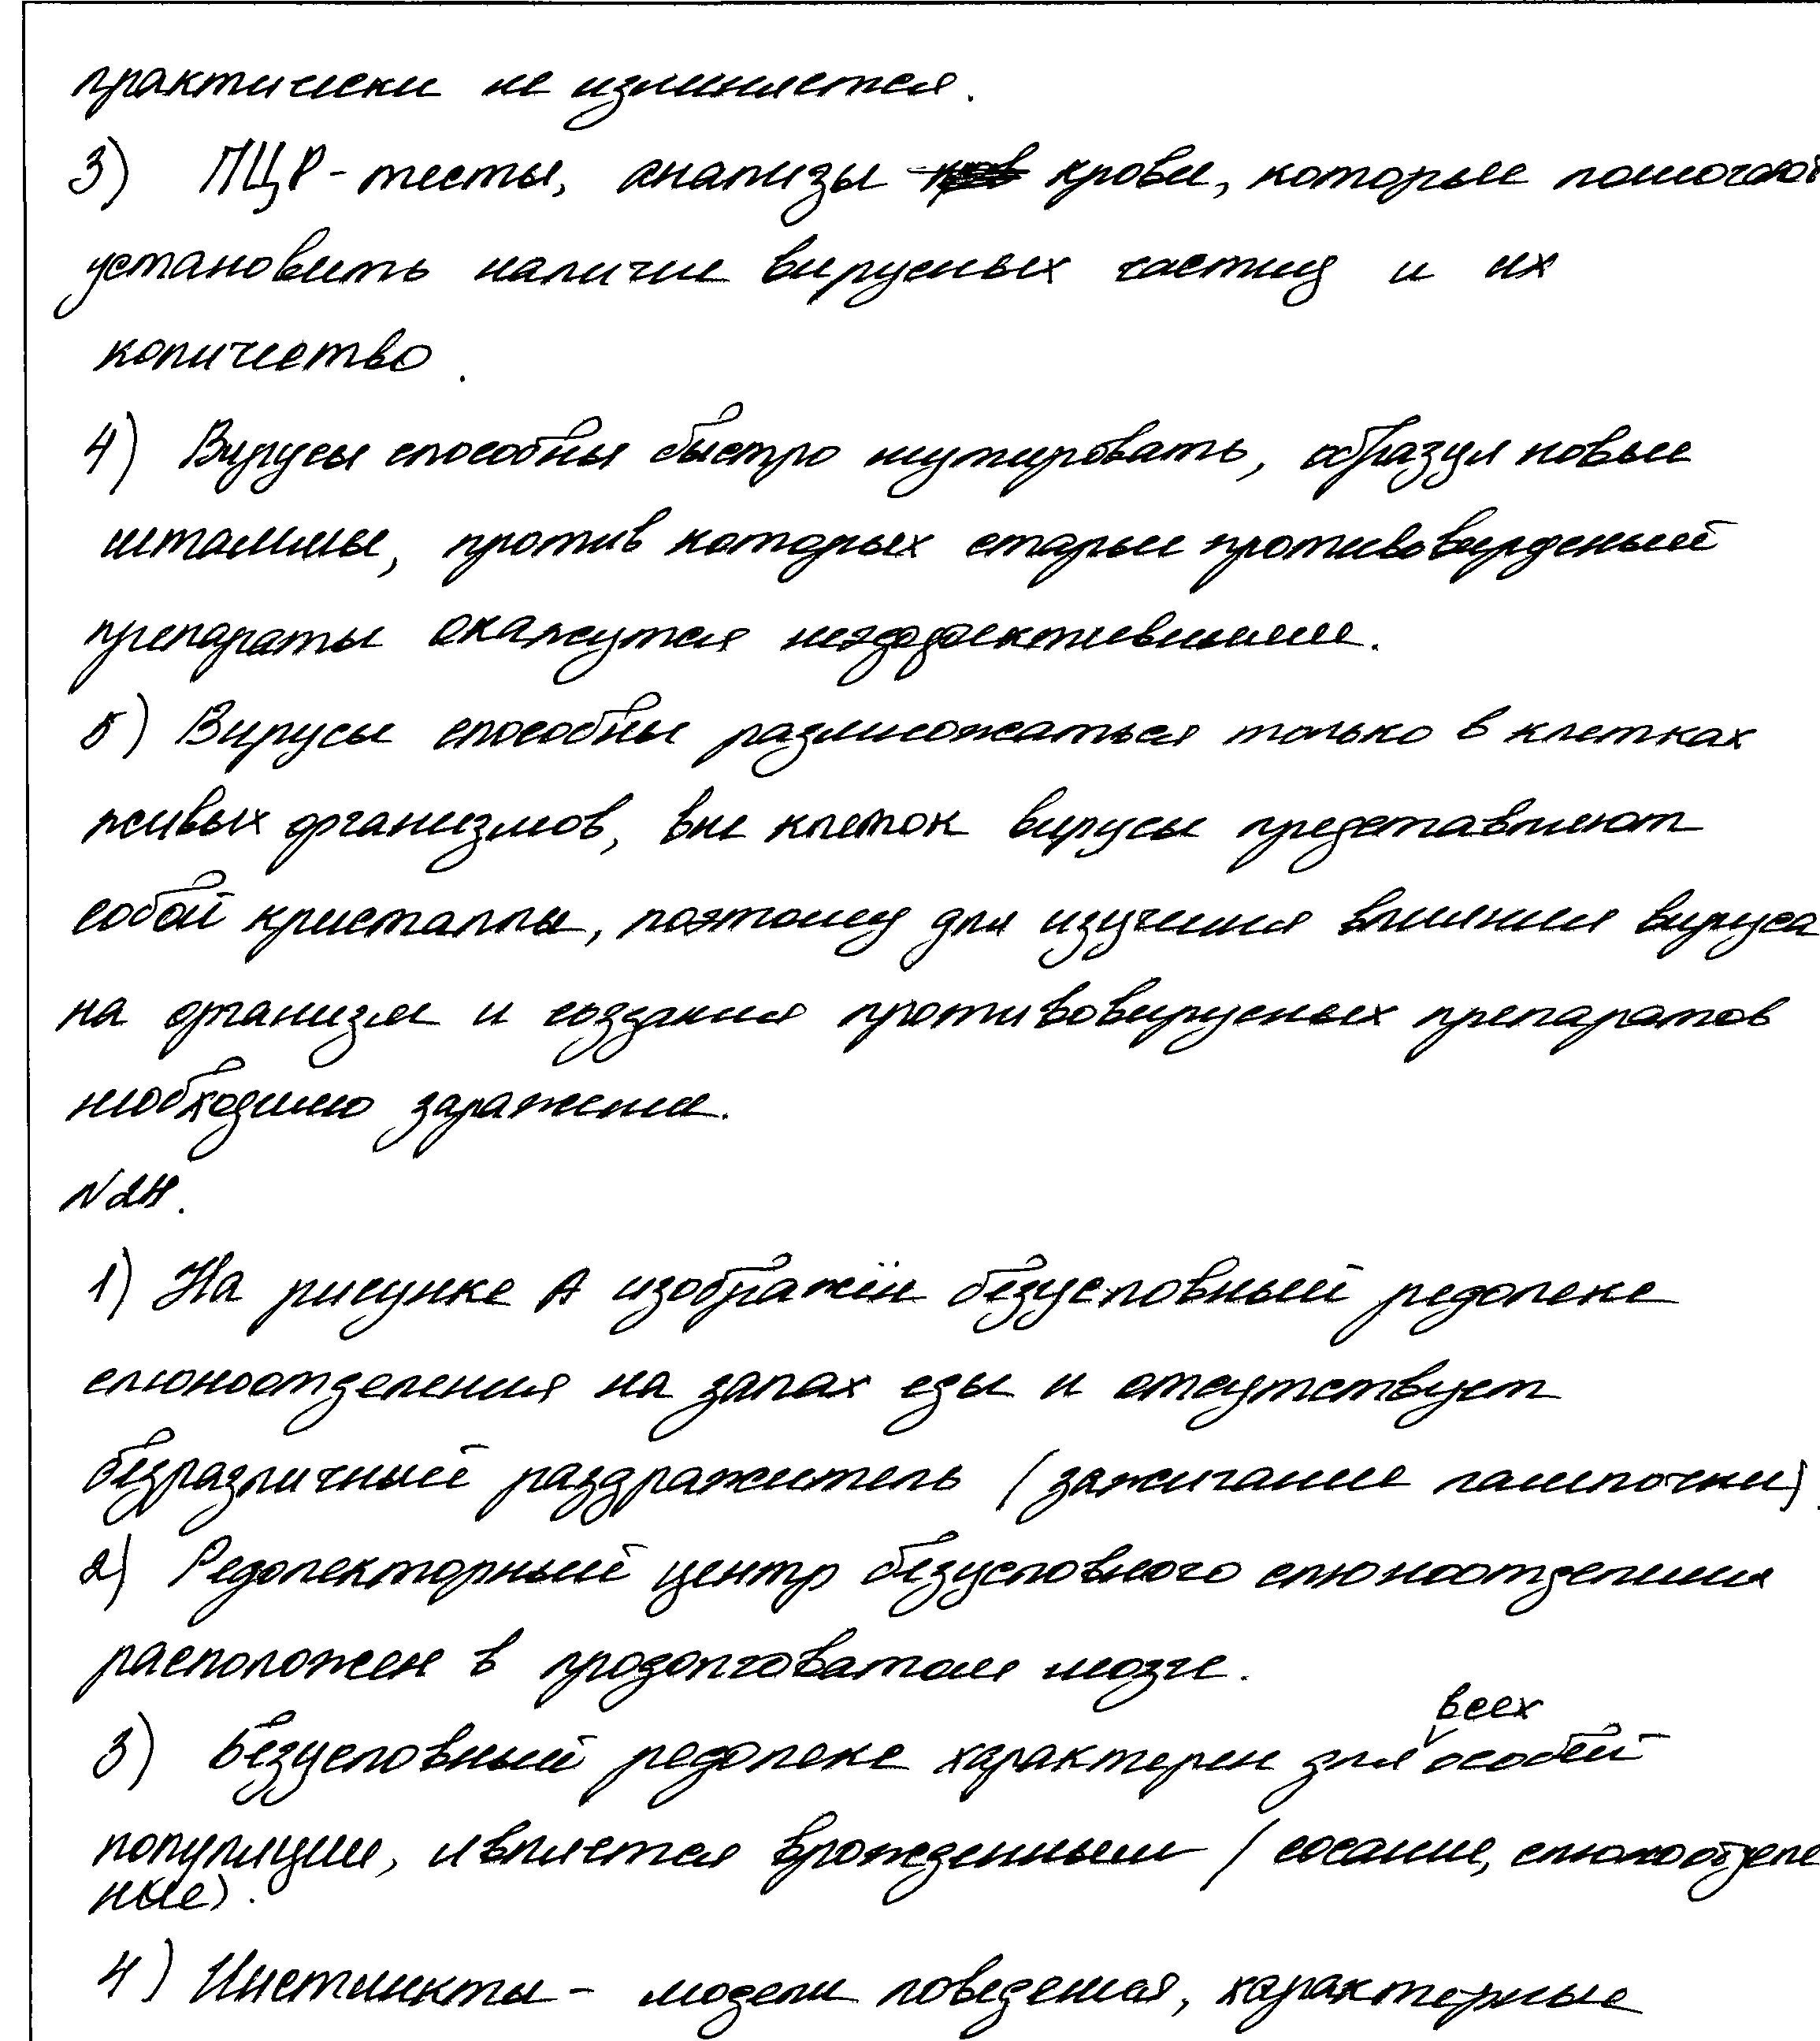 практически не изменяется.
3) ПЦР-тесты, анализы крови, которые помогают
установить наличие вирусных частиц и их
количество.
4) Вирусы способны быстро мутировать, образуя новые
штаммы, против которых старые противовирусный
препараты окажутся неэффективными.
5) Вирусы способны размножаться только в клетках
живых организмов, вне клеток вирусы представляют
собой кристаллы, поэтому для изучения влияния вируса
на организм и создания противовирусных препаратов
необходимо заражение.
N24.
1) На рисунке А изображён безусловный рефлекс
слюноотделения на запах еды и отсутствует
безразличный раздражитель (зажигание лампочки).
2) Рефлекторный центр безусловного слюноотделения
расположен в продолговатом мозге.
3) Безусловный рефлекс характерен для всех особей
популяции, является врожденным (сосание, слюноотделе
ние).
4) Инстинкты - модели поведения, характерные